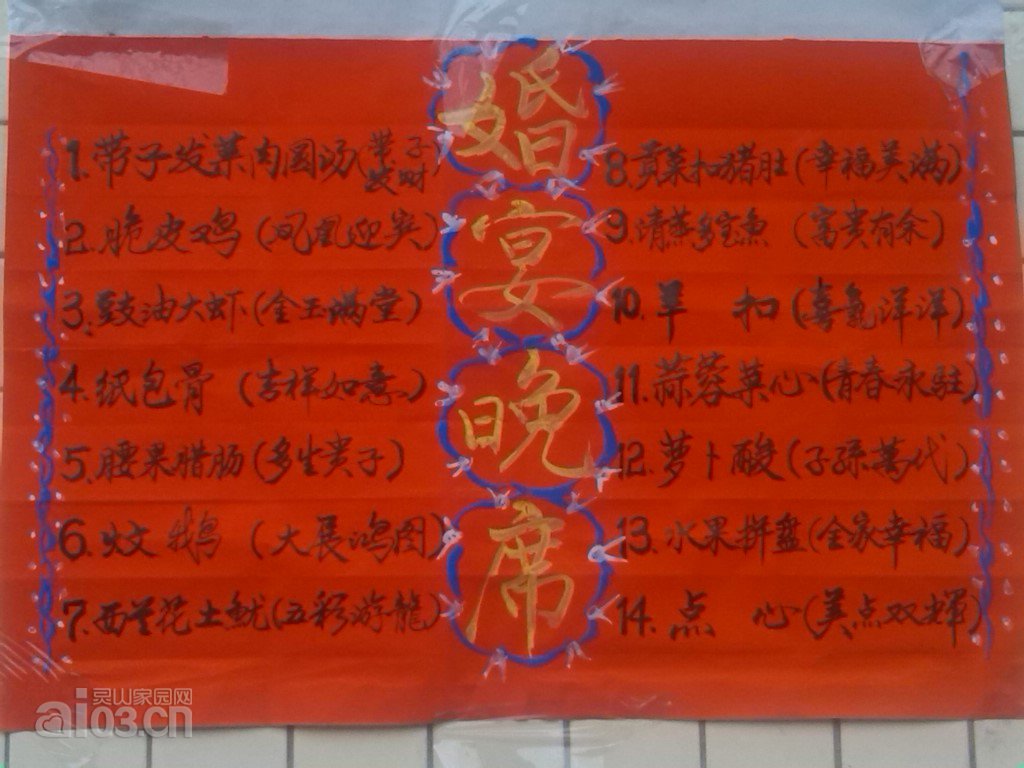 婚宴晚席
1.带子发菜肉园汤(带子发财)
2.脆皮鸡(凤凰迎宾)
3.豉油大虾(金玉满堂)
4.纸包骨(吉祥如意)
5.腰果腊肠(多生贵子)
6.炆鹅(大展鸿图)
7.西兰花土鱿(五彩游龍)
8.贡菜扣猪肚(幸福美满)
9.清蒸多宝魚(富贵有余)
10.羊 扣(喜氣洋洋)
11.蒜蓉菜心(青春永驻)
12.萝卜酸(子孫萬代)
13.水果拼盘(全家幸福)
14.点 心(美点双輝)
灵山家园网
ai03.cn